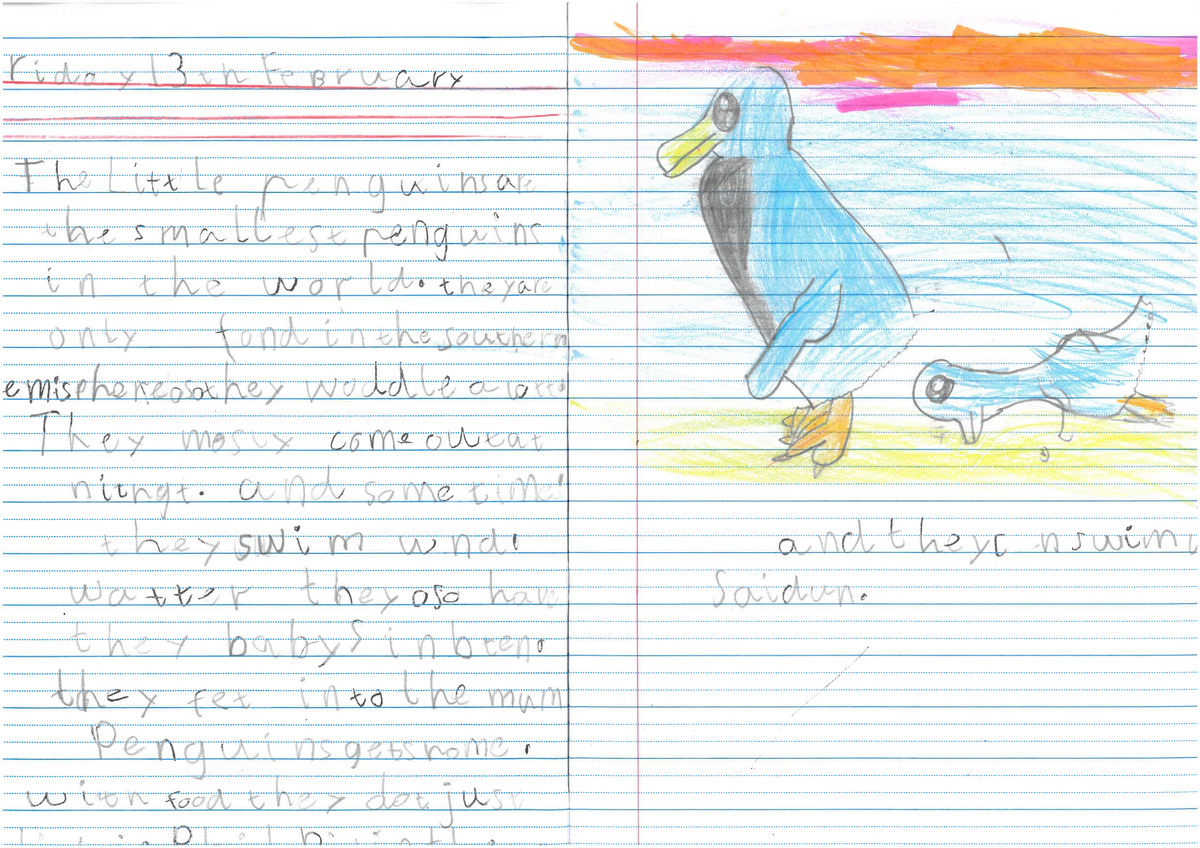 riday 13th FeBruary
The Little penguins are
the smallest penguins
in the world. they are
only fond in the southern
emisphere oso they waddle a
They mosly come out at
niingt. and sometime
they swim und
watter they oso have
they babys in
they fet into the mum
Penguins gets home.
with food they dot just
and they swim
Saidun.